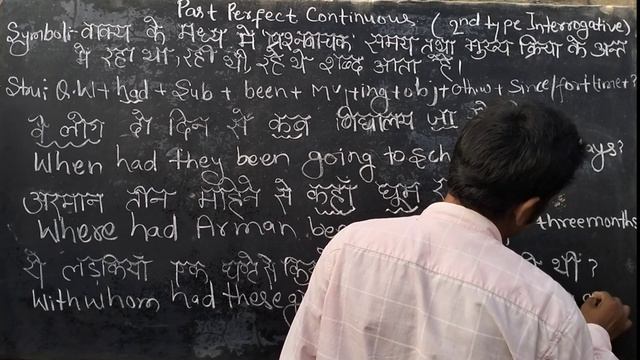 Past Perfect Continuous (2nd type Interrogative)
Symbol:- वाक्य के मध्य में 'प्रश्नवाचक' समय तथा मुख्य क्रिया के अन्त
में रहा था, रही थी, रहे थे शब्द आता है।
Stru: Q.W + had + Sub + been + MV + ing + obj + othw + Since/for time + ?
वे लोग दो दिन से कब विद्यालय जा
When had they been going to sch ays?
अरमान तीन महिने से कहाँ घूम
Where had Arman bee three months
ये लड़कियाँ एक घण्टे से कि थीं ?
With whom had these g